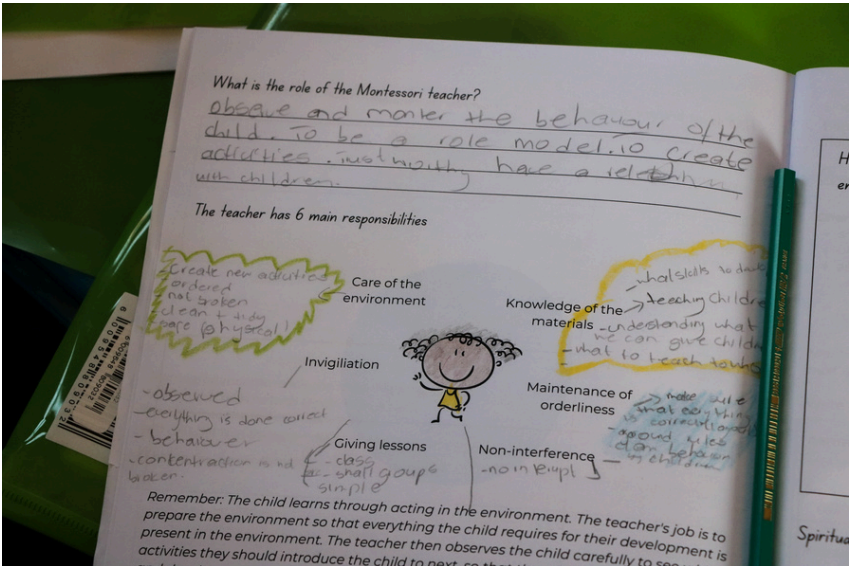 What is the role of the Montessori teacher?
observe and moniter the behaviour of the
child. To be a role model. To create
activities. Trustworthy have a
with children.
The teacher has 6 main responsibilities
Create new activities
ordered
not broken
clean + tidy
care (physical)
Care of the
environment
Knowledge of the
materials
what skills to
teaching childre
-understanding what
we can give childr
-what to teach
Invigiliation
-observed
-everything is done correct
- behaviover
-concentraction is not
broken.
Maintenance of
orderliness
make
what everything
- ground rules
children
Giving lessons
- class
- small groups
simple
Non-interference
-no
Remember: The child learns through acting in the environment. The teacher's job is to
prepare the environment so that everything the child requires for their development is
present in the environment. The teacher then observes the child carefully to see
activities they should introduce the child to next, so that
H
er
Spiritua